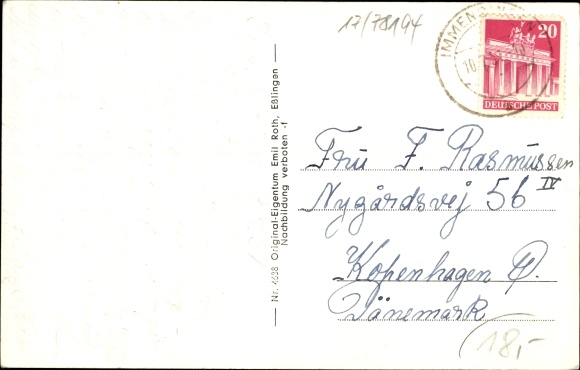 17/78194
IMMENDINGEN
10
20
DEUTSCHE POST
Nr. 4638 Original-Eigentum Emil Roth, Eßlingen
Nachbildung verboten -f
Fru F. Rasmussen
Nygårdsvej 56 IV
Kopenhagen Ø.
Dänemark
18,-